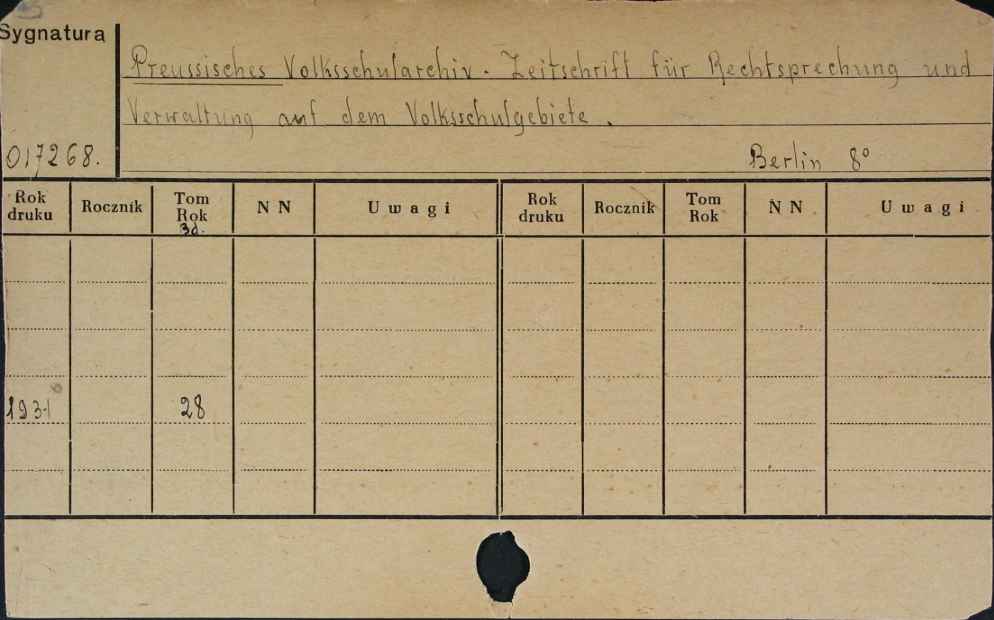 Sygnatura
Preussisches Volksschularchiv. Zeitschrift für Rechtsprechung und
Verwaltung auf dem Volksschulgebiete.
017268.
Berlin 8°
Rok druku Rocznik Tom Rok Bd. N N Uwagi Rok druku Rocznik Tom Rok N N Uwagi
1931 28